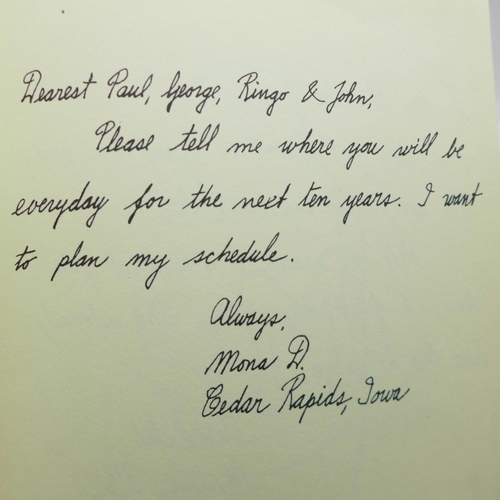 Dearest Paul, George, Ringo & John,
Please tell me where you will be
everyday for the next ten years. I want
to plan my schedule.
Always,
Mona D.
Cedar Rapids, Iowa